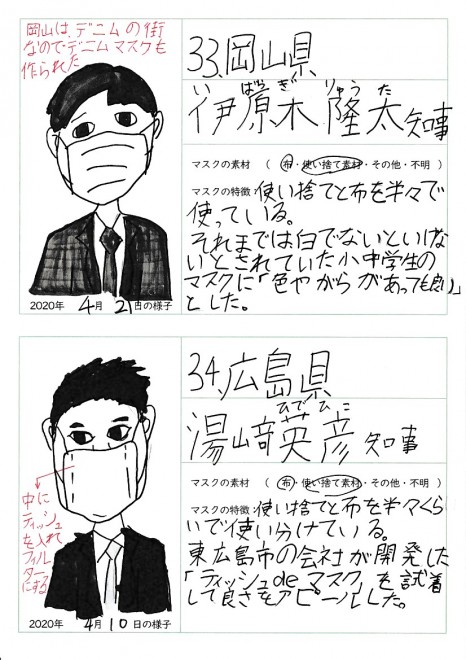 岡山は、デニムの街
なので、デニムマスクも
作られた
2020年 4月 2日の様子
33、岡山県
いばらぎ りゅうた
伊原木 隆太知事
マスクの素材 （ 布・使い捨て素材・その他・不明 ）
マスクの特徴 使い捨てと布を半々で
使っている。
それまでは白でないといけな
いとされていた小中学生の
マスクに「色やがらがあっても良い」
とした。
中に
ティッシュ
を入れ
フィル
ターに
する
2020年 4月 10日の様子
34、広島県
ひでひこ
湯﨑英彦知事
マスクの素材 （ 布・使い捨て素材・その他・不明 ）
マスクの特徴 使い捨てと布を半々くら
いで使い分けている。
東広島市の会社が開発した
「ティッシュdeマスク」を試着
して良さをアピールした。